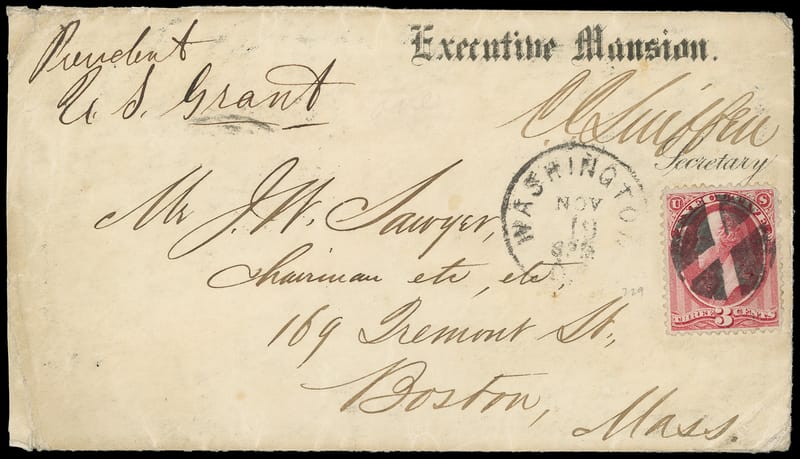 President
U. S. Grant
Executive Mansion.
C C Sniffen
Secretary
WASHINGTON
NOV
19
Mr J. W. Sawyer,
Chairman etc, etc,
169 Tremont St.,
Boston, Mass.
U S
THREE 3 CENTS
729